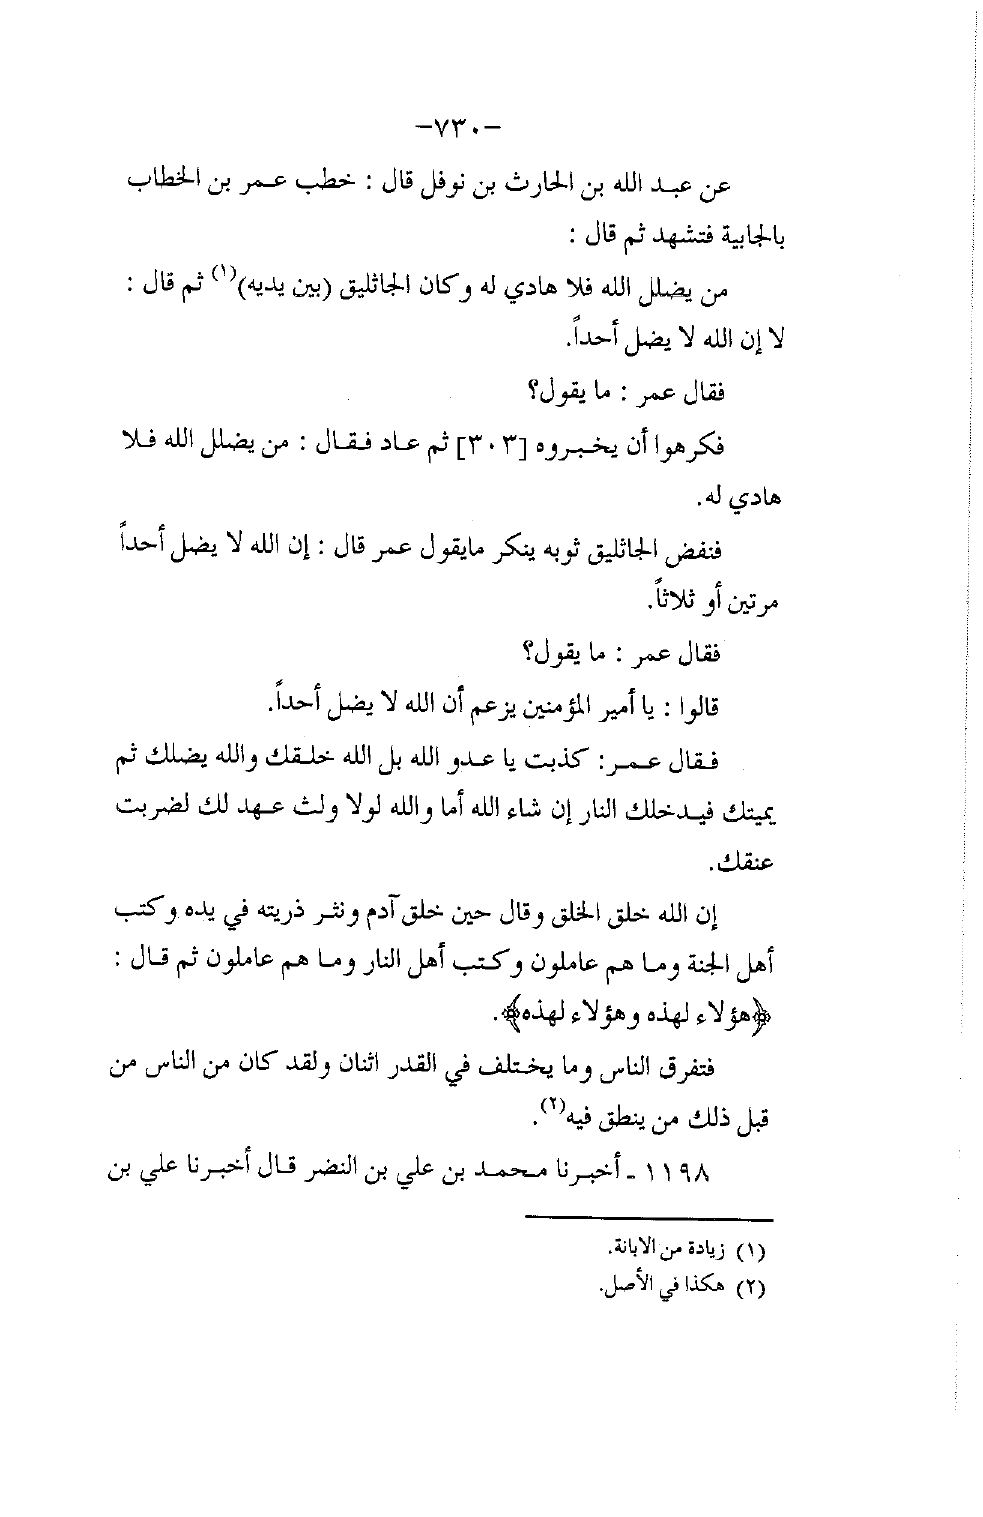 -٧٣٠-
عن عبد الله بن الحارث بن نوفل قال : خطب عمر بن الخطاب
بالجابية فتشهد ثم قال :
من يضلل الله فلا هادي له وكان الجاثليق (بين يديه)(١) ثم قال :
لا إن الله لا يضل أحداً.
فقال عمر : ما يقول؟
فكرهوا أن يخبروه [٣٠٣] ثم عاد فقال : من يضلل الله فلا
هادي له.
فنفض الجاثليق ثوبه ينكر مايقول عمر قال : إن الله لا يضل أحداً
مرتين أو ثلاثاً.
فقال عمر : ما يقول؟
قالوا : يا أمير المؤمنين يزعم أن الله لا يضل أحداً.
فقال عمر: كذبت يا عدو الله بل الله خلقك والله يضلك ثم
يميتك فيدخلك النار إن شاء الله أما والله لولا ولث عهد لك لضربت
عنقك.
إن الله خلق الخلق وقال حين خلق آدم ونثر ذريته في يده وكتب
أهل الجنة وما هم عاملون وكتب أهل النار وما هم عاملون ثم قال :
﴿هؤلاء لهذه وهؤلاء لهذه﴾.
فتفرق الناس وما يختلف في القدر اثنان ولقد كان من الناس من
قبل ذلك من ينطق فيه(٢).
١١٩٨ - أخبرنا محمد بن علي بن النضر قال أخبرنا علي بن
(١) زيادة من الابانة.
(٢) هكذا في الأصل.